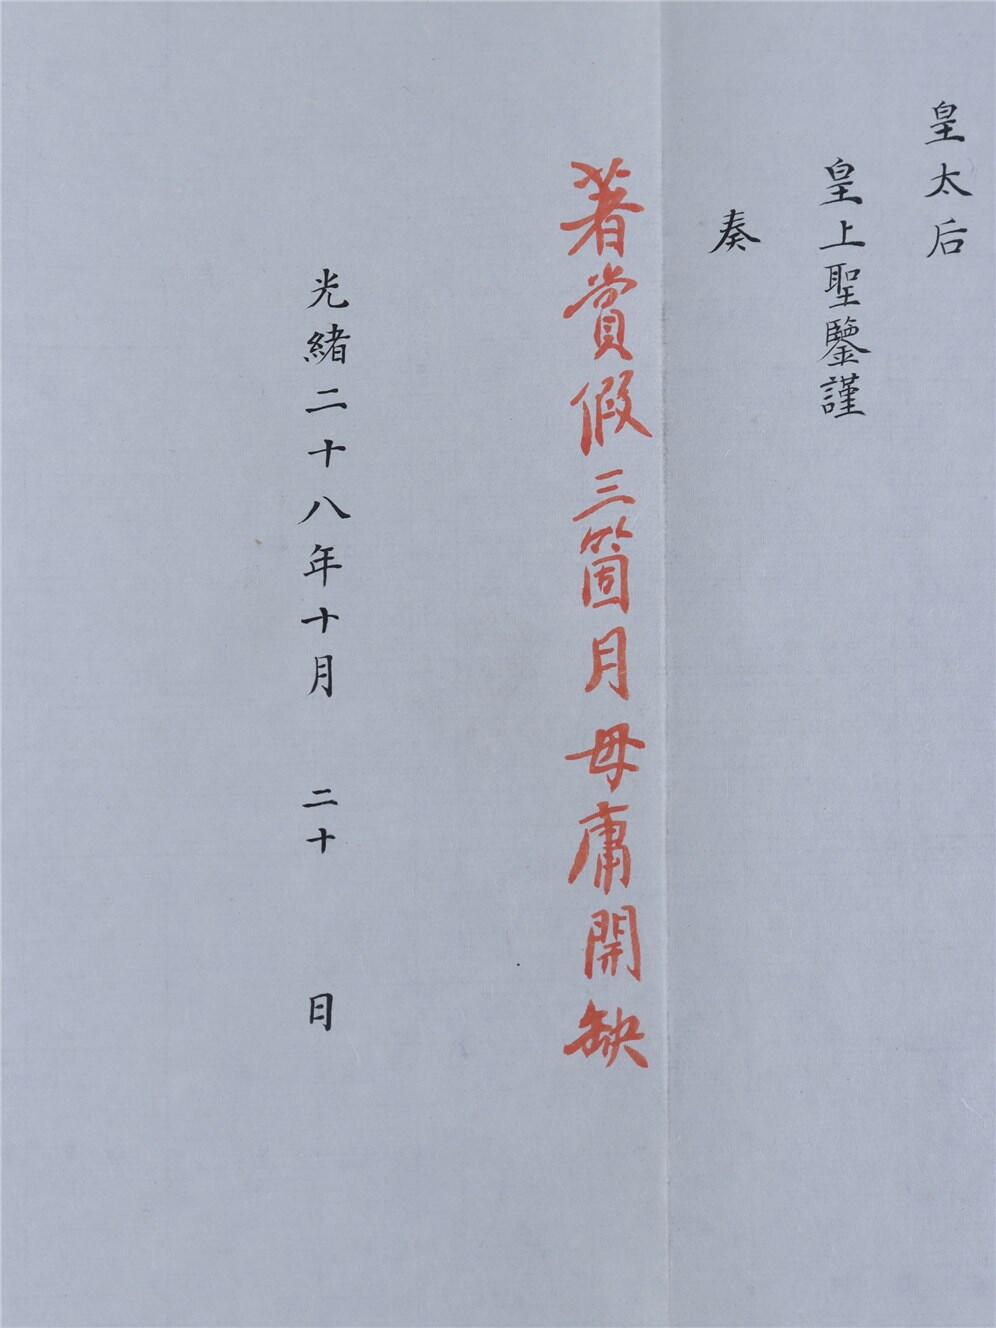 皇太后
皇上聖鑒謹
奏
著賞假三箇月毋庸開缺
光緒二十八年十月二十日